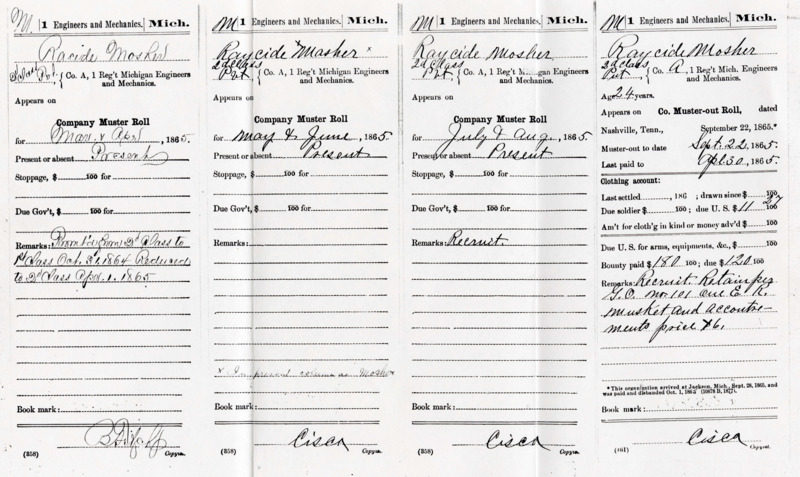 M. | 1 Engineers and Mechanics. | Mich.
Racide Mosher
Pvt. { Co. A, 1 Reg't Michigan Engineers
and Mechanics.
Appears on
Company Muster Roll
for Mar. & Apl, 1865.
Present or absent Present
Stoppage, $ 100 for
Due Gov't, $ 100 for
Remarks: Prom from 2d Class to
1st Class Oct. 31, 1864 Reduced
to 2d Class Apl. 1. 1865
Book mark:
(358) Copyist.
M | 1 Engineers and Mechanics. | Mich.
Raycide Masher x
2d Class
Pvt { Co. A, 1 Reg't Michigan Engineers
and Mechanics.
Appears on
Company Muster Roll
for May & June, 1865
Present or absent Present
Stoppage, $ 100 for
Due Gov't, $ 100 for
Remarks:
x In present column as Mosher
Book mark:
Cisca
(358) Copyist.
M | 1 Engineers and Mechanics. | Mich.
Raycide Mosher
2d Class
Pvt. { Co. A, 1 Reg't Michigan Engineers
and Mechanics.
Appears on
Company Muster Roll
for July & Aug., 1865
Present or absent Present
Stoppage, $ 100 for
Due Gov't, $ 100 for
Remarks: Recruit
Book mark:
Cisca
(358) Copyist.
M | 1 Engineers and Mechanics. | Mich.
Raycide Mosher
2d Class
Pvt { Co. A, 1 Reg't Mich. Engineers
and Mechanics.
Age 24 years.
Appears on Co. Muster-out Roll, dated
Nashville, Tenn., September 22, 1865.*
Muster-out to date Sept. 22, 1865.
Last paid to Apl 30, 1865.
Clothing account:
Last settled, 186 ; drawn since $ 100
Due soldier $ 100; due U. S. $ 11 27 100
Am't for cloth'g in kind or money adv'd $ 100
Due U. S. for arms, equipments, &c., $ 100
Bounty paid $ 180 100; due $ 120 100
Remarks: Recruit. Retain per
G.O. No 101 one E. R.
musket and accoutre-
ments price $6.
*This organization arrived at Jackson, Mich., Sept. 28, 1865, and
was paid and disbanded Oct. 1, 1865
Book mark:
Cisca
(361) Copyist.